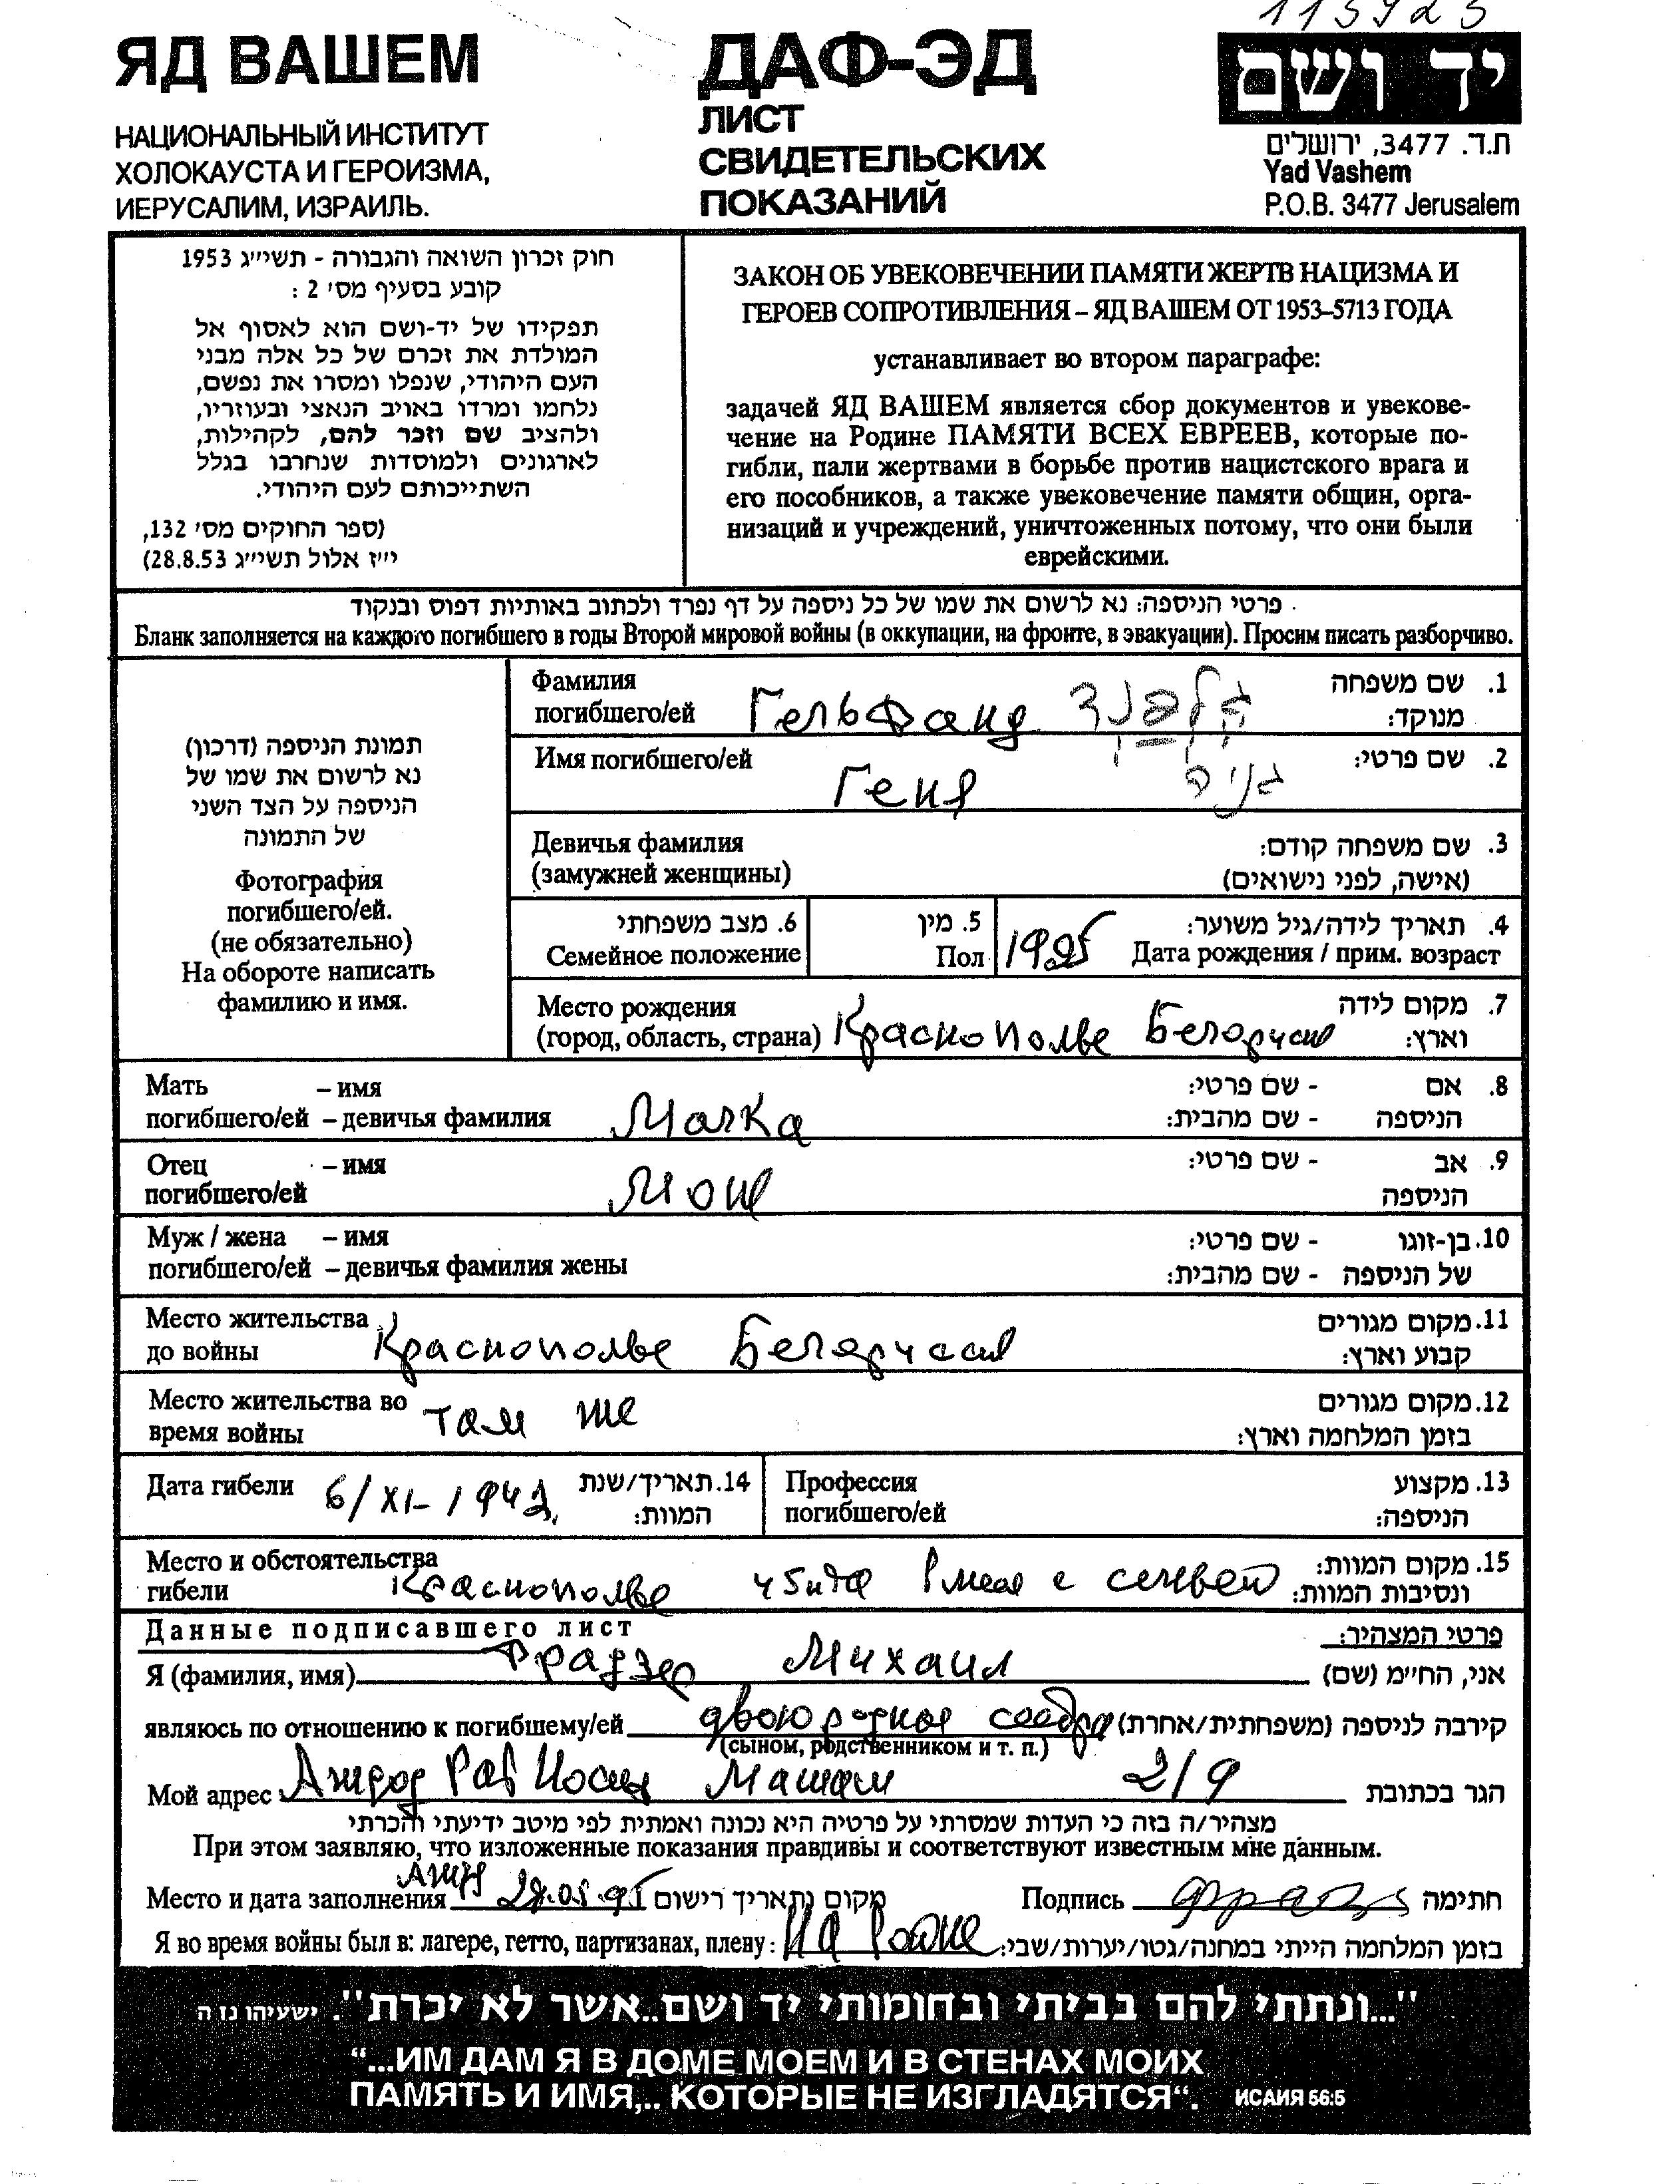 ЯД ВАШЕМ
НАЦИОНАЛЬНЫЙ ИНСТИТУТ
ХОЛОКАУСТА И ГЕРОИЗМА,
ИЕРУСАЛИМ, ИЗРАИЛЬ.
ДАФ-ЭД
ЛИСТ
СВИДЕТЕЛЬСКИХ
ПОКАЗАНИЙ
יד ושם
ת.ד. 3477, ירושלים
Yad Vashem
P.O.B. 3477 Jerusalem
חוק זכרון השואה והגבורה - תשי״ג 1953
קובע בסעיף מס׳ 2 :
תפקידו של יד-ושם הוא לאסוף אל
המולדת את זכרם של כל אלה מבני
העם היהודי, שנפלו ומסרו את נפשם,
נלחמו ומרדו באויב הנאצי ובעוזריו,
ולהציב שם וזכר להם, לקהילות,
לארגונים ולמוסדות שנחרבו בגלל
השתייכותם לעם היהודי.
(ספר החוקים מס׳ 132,
י״ז אלול תשי״ג 28.8.53)
ЗАКОН ОБ УВЕКОВЕЧЕНИИ ПАМЯТИ ЖЕРТВ НАЦИЗМА И
ГЕРОЕВ СОПРОТИВЛЕНИЯ – ЯД ВАШЕМ ОТ 1953–5713 ГОДА
устанавливает во втором параграфе:
задачей ЯД ВАШЕМ является сбор документов и увекове-
чение на Родине ПАМЯТИ ВСЕХ ЕВРЕЕВ, которые по-
гибли, пали жертвами в борьбе против нацистского врага и
его пособников, а также увековечение памяти общин, орга-
низаций и учреждений, уничтоженных потому, что они были
еврейскими.
פרטי הניספה: נא לרשום את שמו של כל ניספה על דף נפרד ולכתוב באותיות דפוס ובנקוד
Бланк заполняется на каждого погибшего в годы Второй мировой войны (в оккупации, на фронте, в эвакуации). Просим писать разборчиво.
תמונת הניספה (דרכון)
נא לרשום את שמו של
הניספה על הצד השני
של התמונה
Фотография
погибшего/ей.
(не обязательно)
На обороте написать
фамилию и имя.
Фамилия
погибшего/ей Гельфанд גלפנד
1. שם משפחה
מנוקד:
Имя погибшего/ей Геня גניה 2. שם פרטי:
Девичья фамилия
(замужней женщины)
3. שם משפחה קודם:
(אישה, לפני נישואים)
6. מצב משפחתי
Семейное положение
5. מין
Пол
1925
4. תאריך לידה/גיל משוער:
Дата рождения / прим. возраст
Место рождения
(город, область, страна) Краснополье Белорусия
7. מקום לידה
וארץ:
Мать – имя
погибшего/ей – девичья фамилия Малка
8. אם - שם פרטי:
הניספה - שם מהבית:
Отец – имя
погибшего/ей Мош
9. אב - שם פרטי:
הניספה
Муж / жена – имя
погибшего/ей – девичья фамилия жены
10. בן-זוגו - שם פרטי:
של הניספה - שם מהבית:
Место жительства
до войны Краснополье Белоруссия
11. מקום מגורים
קבוע וארץ:
Место жительства во
время войны там же
12. מקום מגורים
בזמן המלחמה וארץ:
Дата гибели 6/XI-1942
14. תאריך/שנת
המוות:
Профессия
погибшего/ей
13. מקצוע
הניספה:
Место и обстоятельства
гибели Краснополье убита вмест с семьей
15. מקום המוות:
ונסיבות המוות:
Данные подписавшего лист פרטי המצהיר:
Я (фамилия, имя) Фрадзер Михаил אני, החי״מ (שם)
являюсь по отношению к погибшему/ей двоюродная קירבה לניספה (משפחתית/אחרת)
(сыном, родственником и т. п.)
Мой адрес Ашдод Рав 2/9 הגר בכתובת
מצהיר/ה בזה כי העדות שמסרתי על פרטיה היא נכונה ואמתית לפי מיטב ידיעתי והכרתי
При этом заявляю, что изложенные показания правдивы и соответствуют известным мне данным.
Место и дата заполнения 28.05.95 מקום ותאריך רישום Подпись חתימה
Я во время войны был в: лагере, гетто, партизанах, плену: בזמן המלחמה הייתי במחנה/גטו/יערות/שבי:
"...ונתתי להם בביתי ובחומותי יד ושם..אשר לא יכרת". ישעיהו נז ה
“...ИМ ДАМ Я В ДОМЕ МОЕМ И В СТЕНАХ МОИХ
ПАМЯТЬ И ИМЯ,.. КОТОРЫЕ НЕ ИЗГЛАДЯТСЯ“. ИСАИЯ 56:5